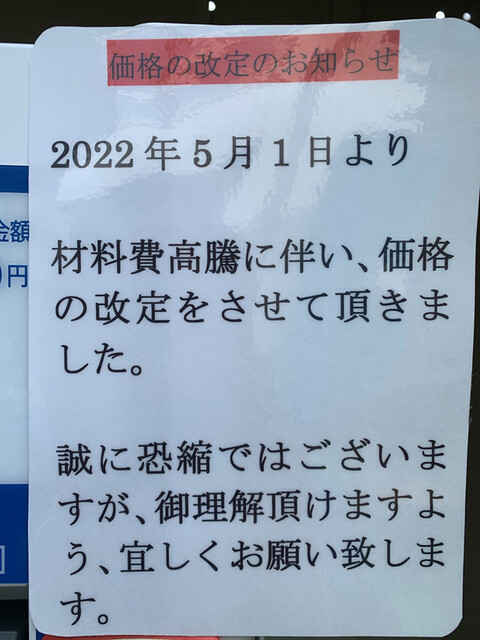 価格の改定のお知らせ
2022年5月1日より
材料費高騰に伴い、価格
の改定をさせて頂きま
した。
誠に恐縮ではございま
すが、御理解頂けますよ
う、宜しくお願い致しま
す。
金額
円